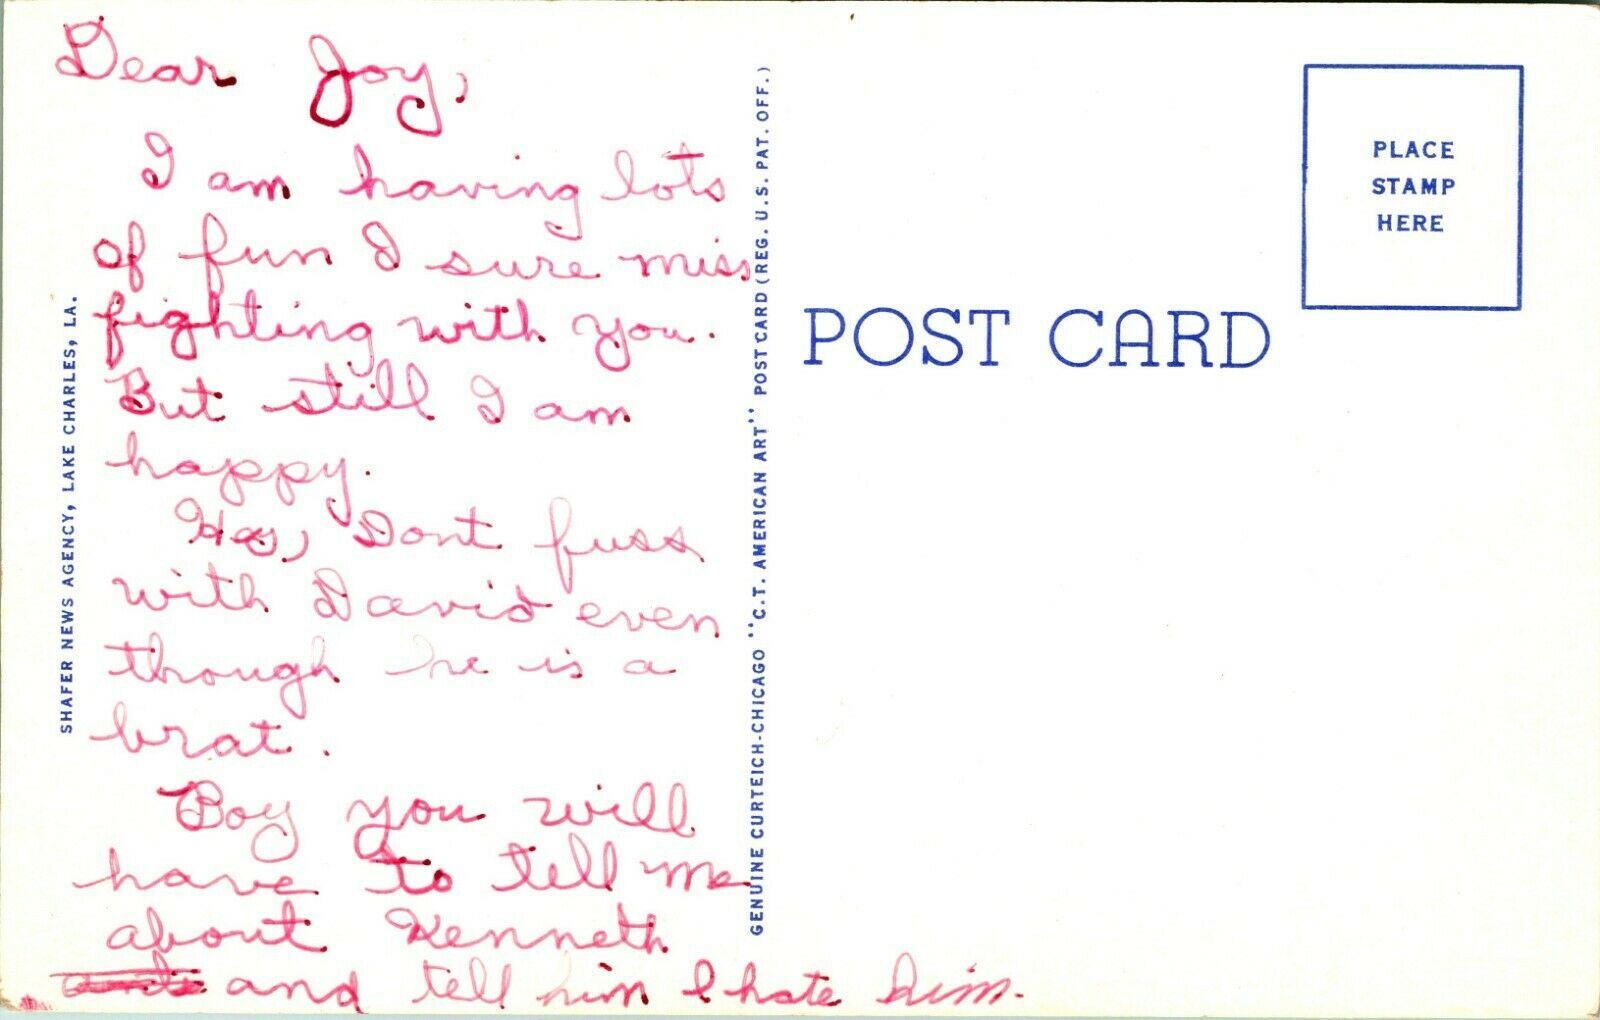 Dear Joy,
I am having lots
of fun I sure miss
fighting with you.
But still I am
happy.
Hey, Dont fuss
with David even
though he is a
brat.
Boy you will
have to tell me
about Kenneth
and tell him I hate him.
SHAFER NEWS AGENCY, LAKE CHARLES, LA.
GENUINE CURTEICH-CHICAGO "C.T. AMERICAN ART" POST CARD (REG. U.S. PAT. OFF.)
POST CARD
PLACE
STAMP
HERE